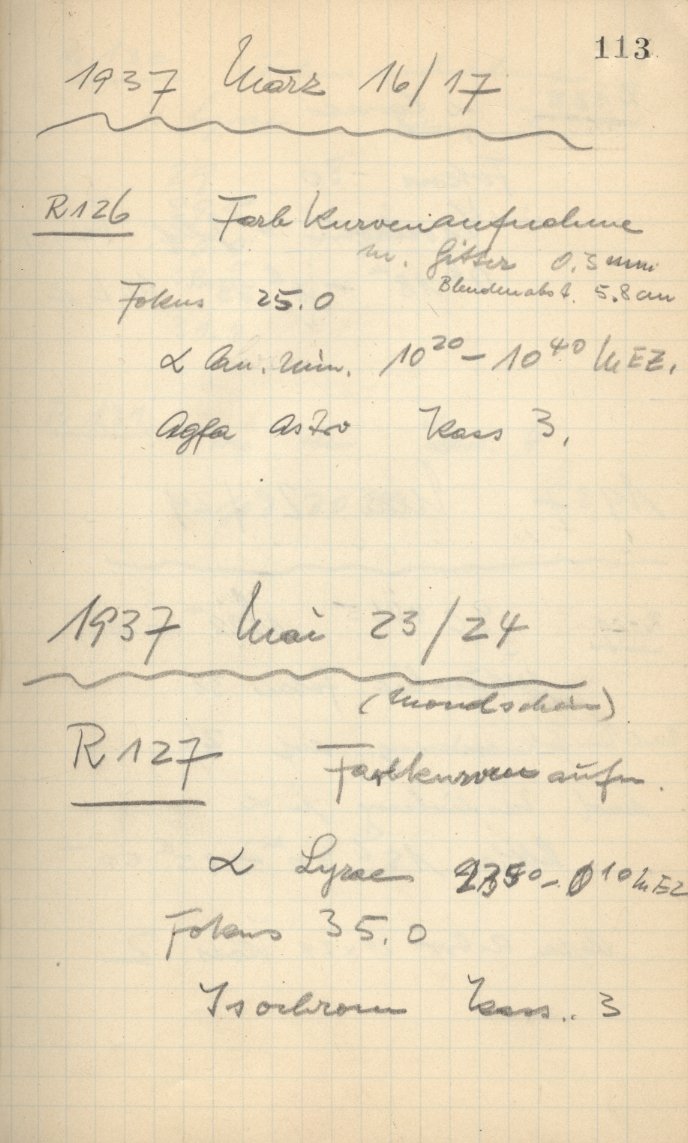 113
1937 März 16/17
R126 Farbkurvenaufnahme
m. Gitter 0.3 mm
Blendenabst. 5.8 cm
Fokus 25.0
α Can. Min. 10²⁰ – 10⁴⁰ MEZ.
Agfa Astro Kass 3.
1937 Mai 23/24
(Mondschein)
R127 Farbkurvenaufn.
α Lyrae 0¹⁰ MEZ
Fokus 35.0
Isochrom Kass. 3